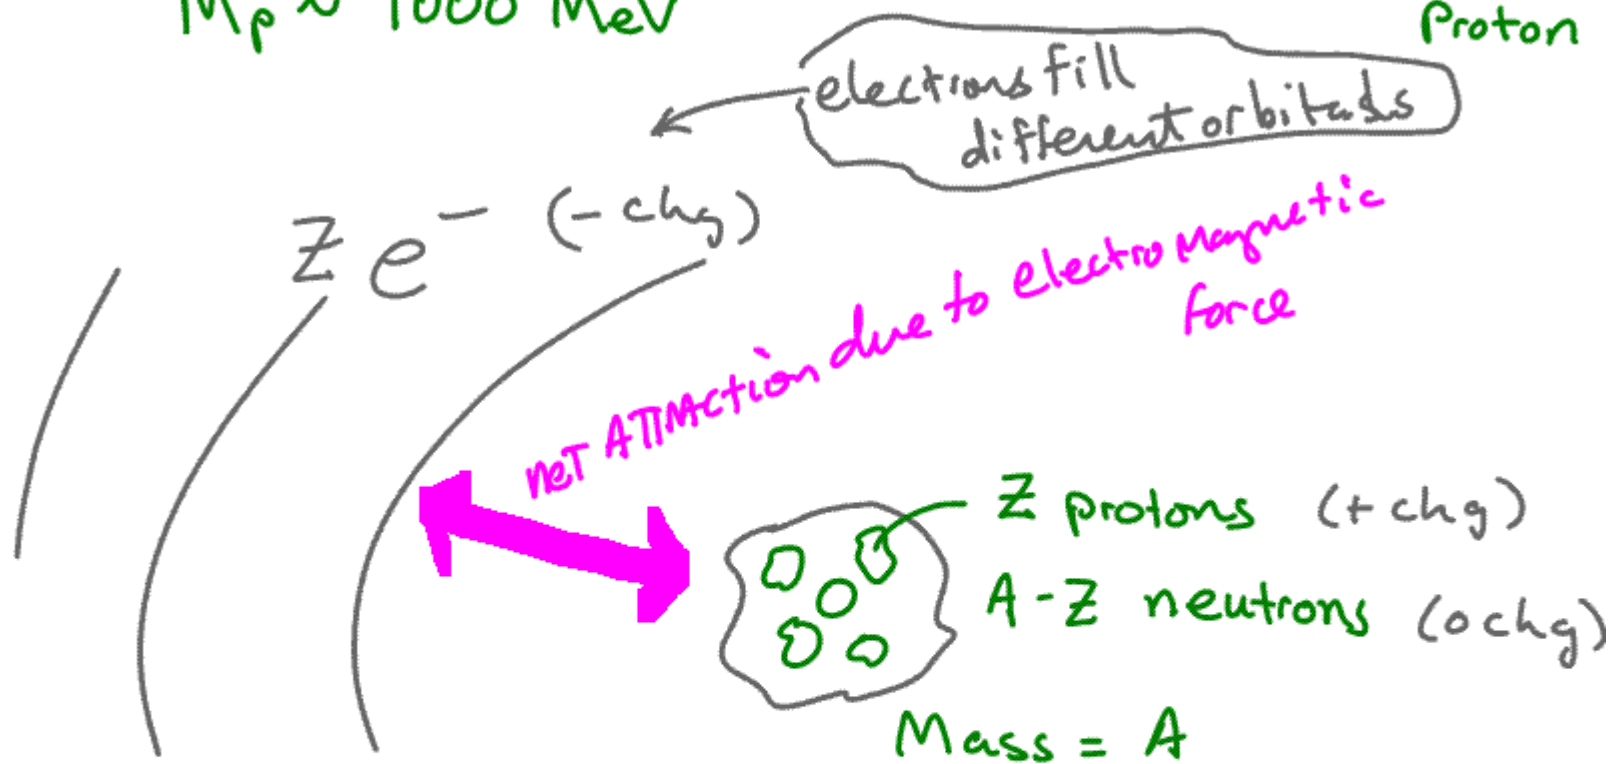 Mp ~ 1000 MeV
Proton
electrons fill
different orbitals
Z e⁻ (- chg)
net Attraction due to electro Magnetic
force
Z protons (+ chg)
A-Z neutrons (0 chg)
Mass = A